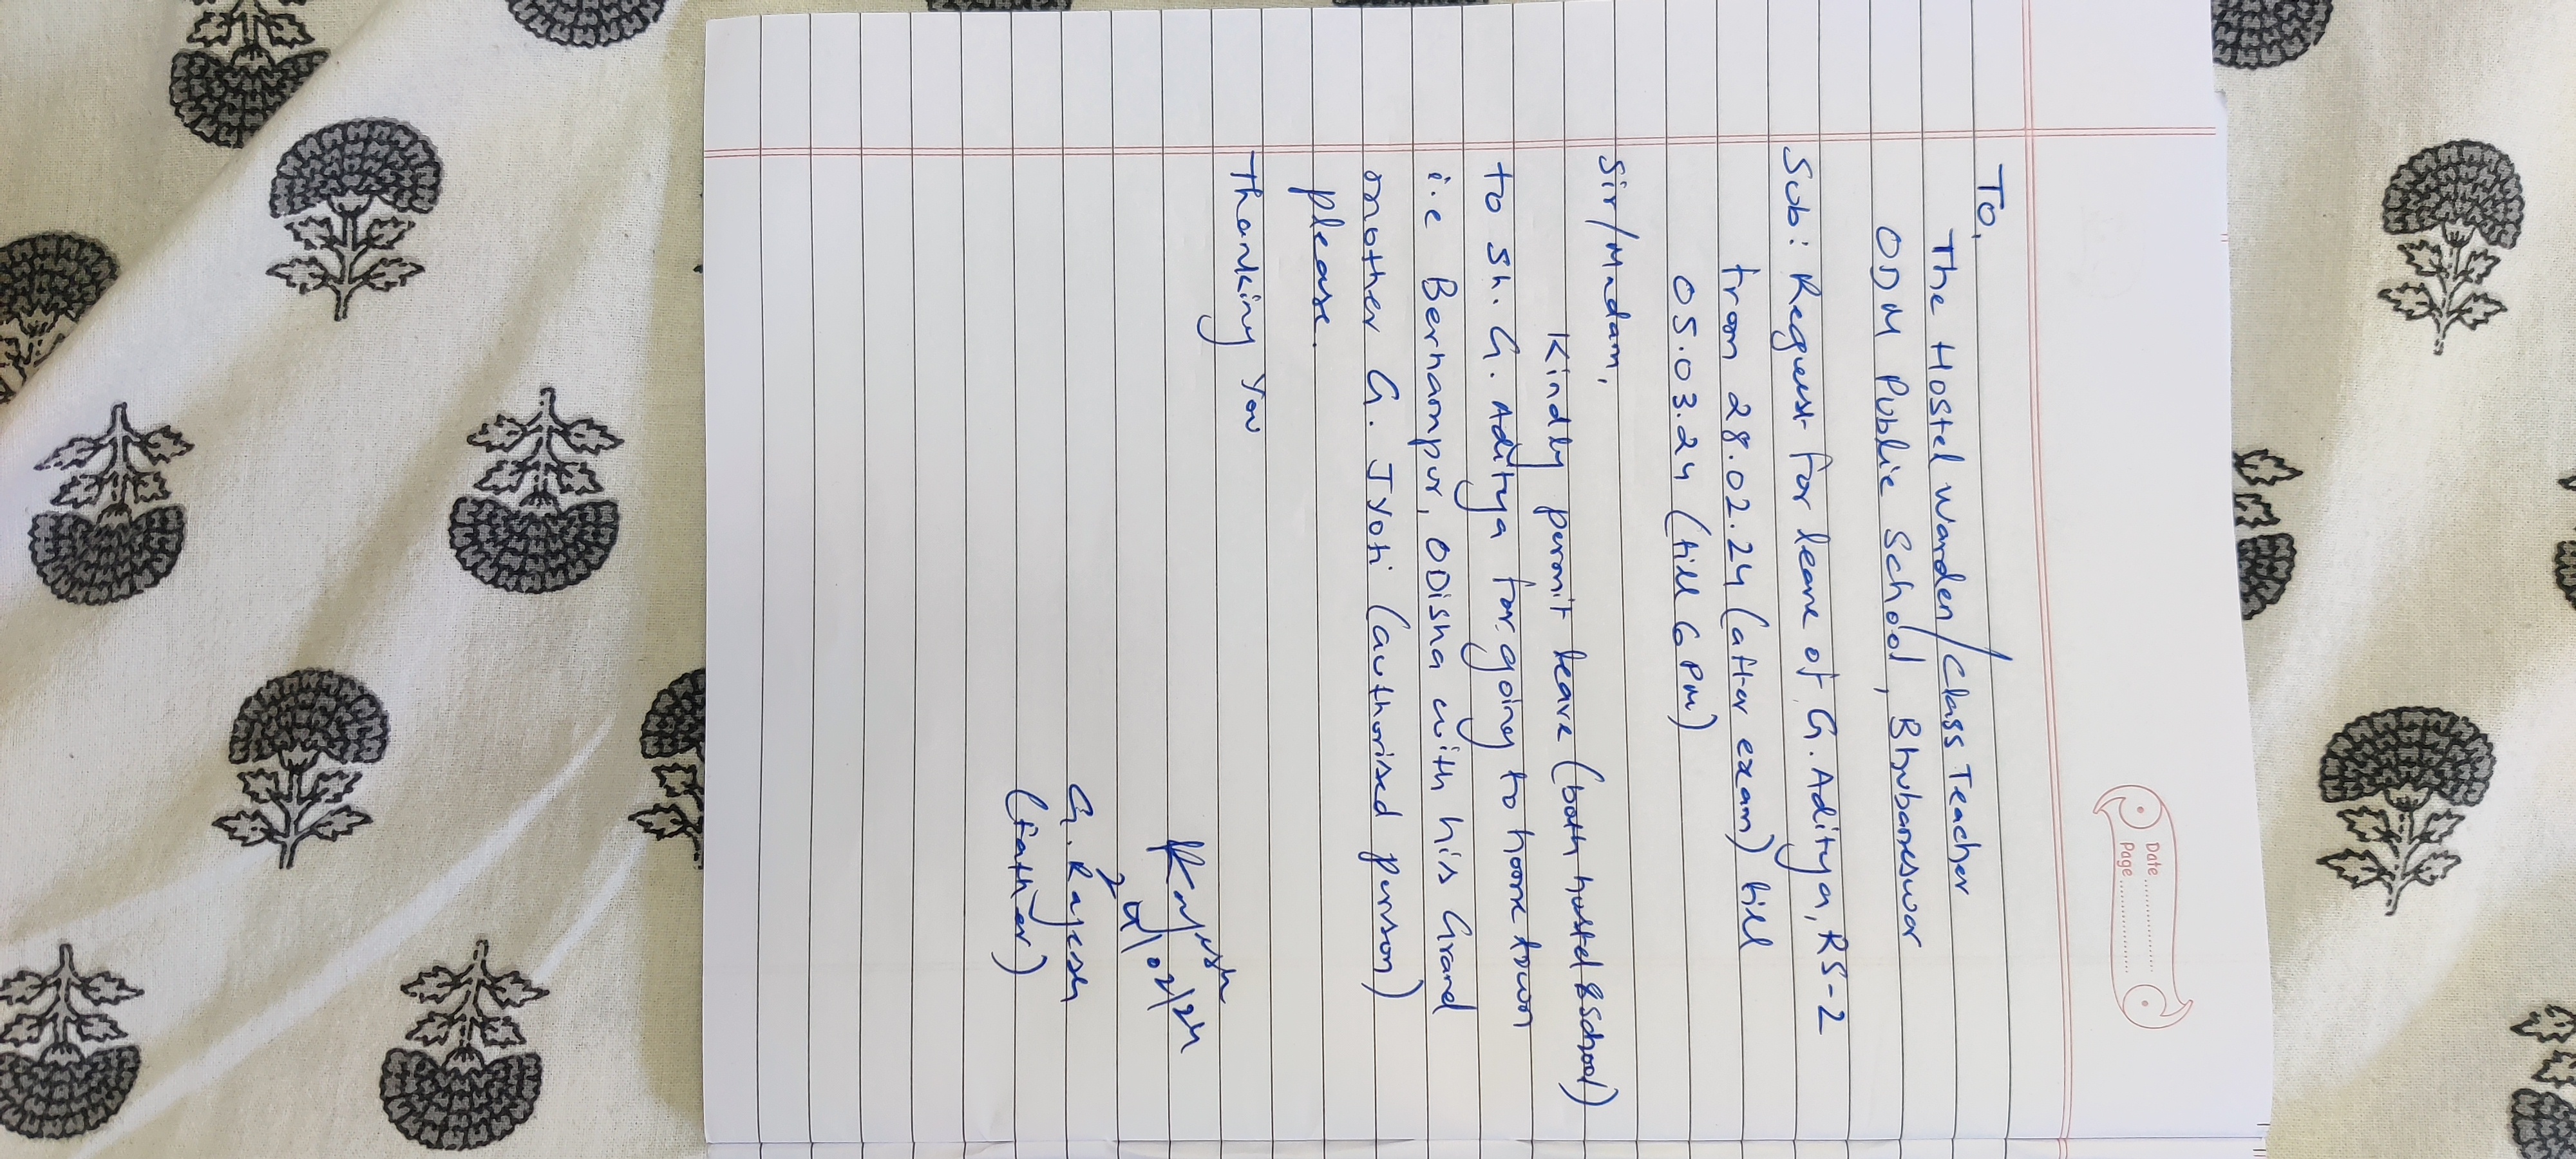 Date
Page
To,
The Hostel Warden/Class Teacher
ODM Public School, Bhubaneswar
Sub: Request for leave of G. Aditya, RS-2
from 28.02.24 (after exam) till
05.03.24 (till 6 PM)
Sir/Madam,
Kindly permit leave (both hostel & School)
to Sh. G. Aditya for going to home town
i.e Berhampur, ODisha with his Grand
mother G. Jyoti (authorised person)
please.
Thanking you
Rajesh
/02/24
G. Rajesh
(father)